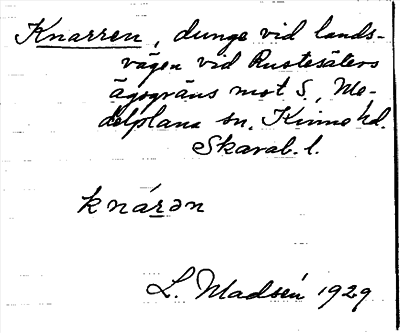 Knarren, dunge vid lands-
vägen vid Rustesäters
ägogräns mot S., Me-
delplana sn, Kinne hd.
Skarab. l.
knárən
L. Madsén 1929